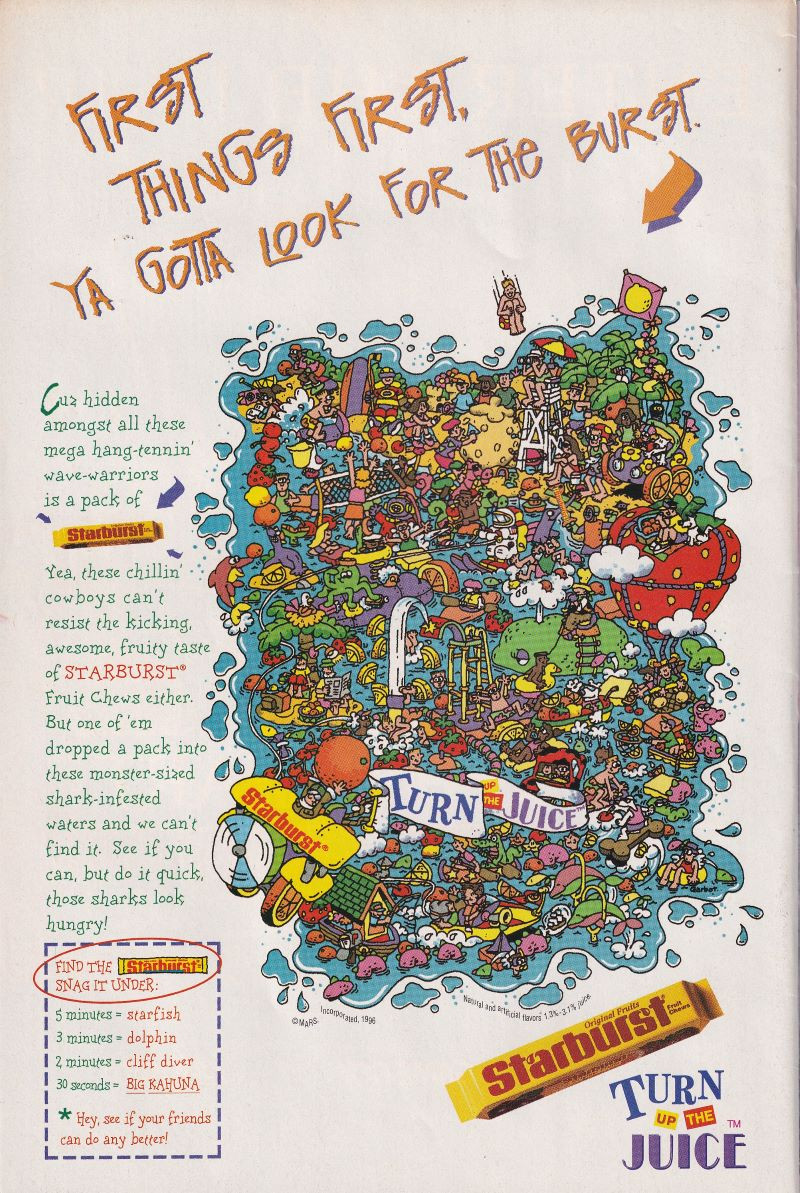 FIRST
THINGS FIRST,
YA GOTTA LOOK FOR THE BURST.
Cuz hidden
amongst all these
mega hang-tennin'
wave-warriors
is a pack of
Starburst
Yea, these chillin'
cowboys can't
resist the kicking,
awesome, fruity taste
of STARBURST®
Fruit Chews either.
But one of 'em
dropped a pack into
these monster-sized
shark-infested
waters and we can't
find it. See if you
can, but do it quick,
those sharks look
hungry!
FIND THE Starburst
SNAG IT UNDER:
5 minutes = starfish
3 minutes = dolphin
2 minutes = cliff diver
30 seconds = BIG KAHUNA
* Hey, see if your friends
can do any better!
Starburst®
TURN UP THE JUICE™
©MARS, Incorporated, 1996
Natural and artificial flavors 1.3%-3.1% juice.
Original Fruits
Starburst®
Fruit
Chews®
TURN
UP THE
JUICE™